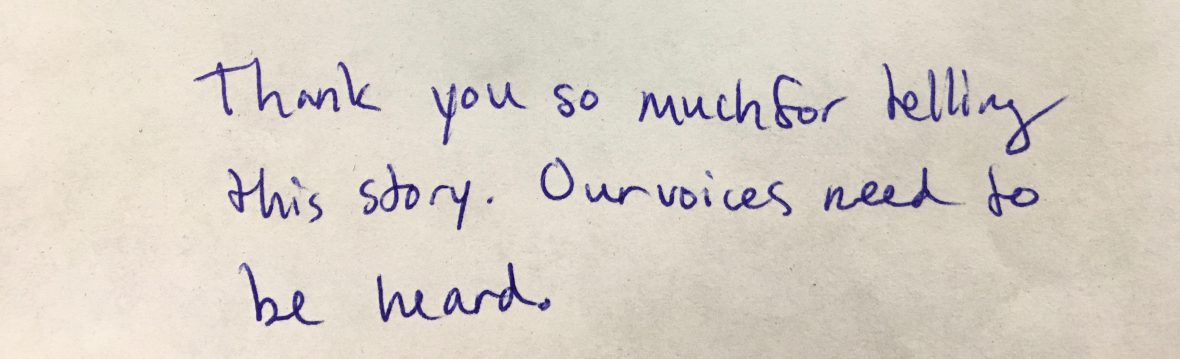 Thank you so much for telling
this story. Our voices need to
be heard.